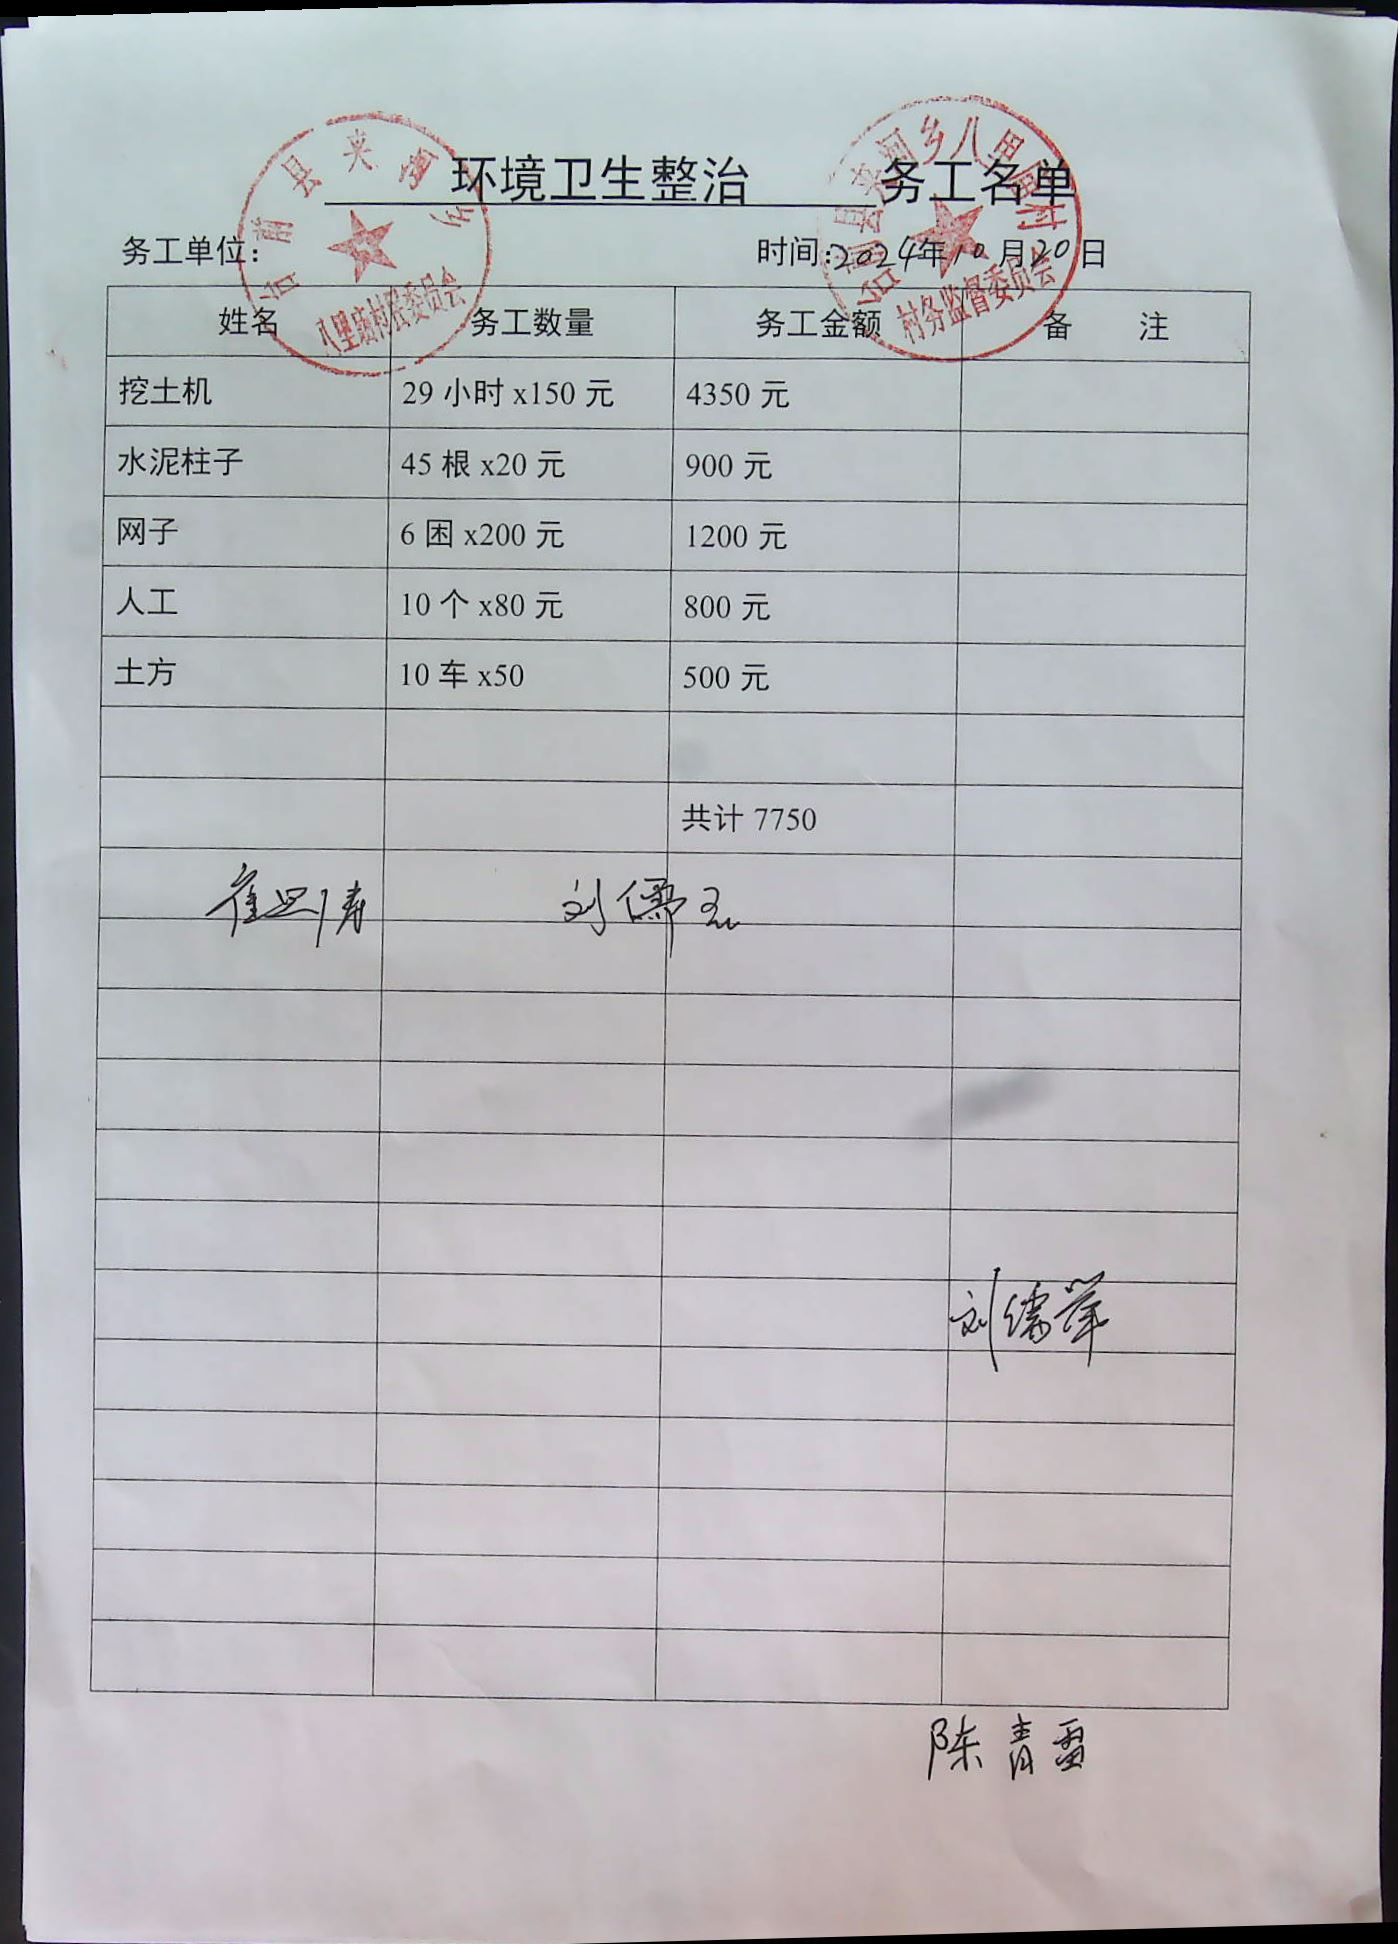 环境卫生整治 务工名单
务工单位: 时间:2024年10月20日
姓名 务工数量 务工金额 备 注
挖土机 29小时x150元 4350元
水泥柱子 45根x20元 900元
网子 6困x200元 1200元
人工 10个x80元 800元
土方 10车x50 500元
共计7750
刘儒
刘儒萍
陈青雷
莒南县夹河乡
八里庙村民委员会
县夹河乡八里庙村
村务监督委员会